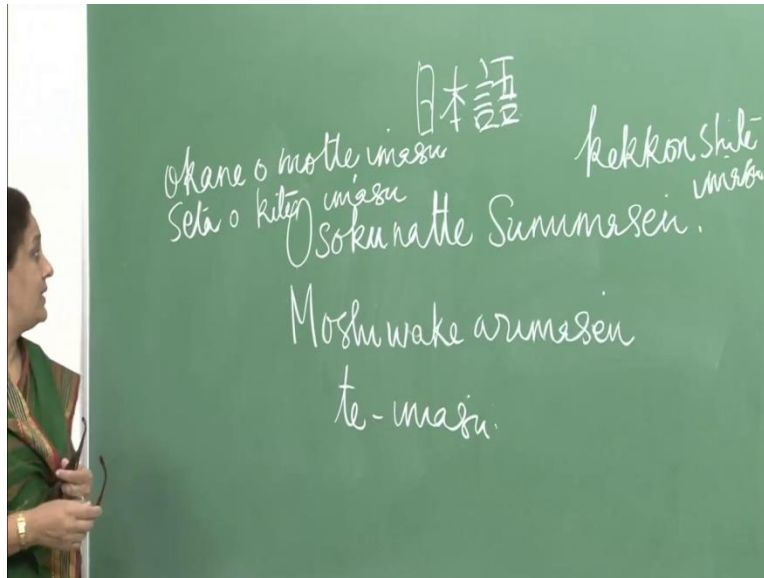 日本語
okane o motte imasu
Seta o kite imasu
kekkon shite
imasu
Osokunatte Sumimasen.
Moshiwake arimasen
te-imasu.